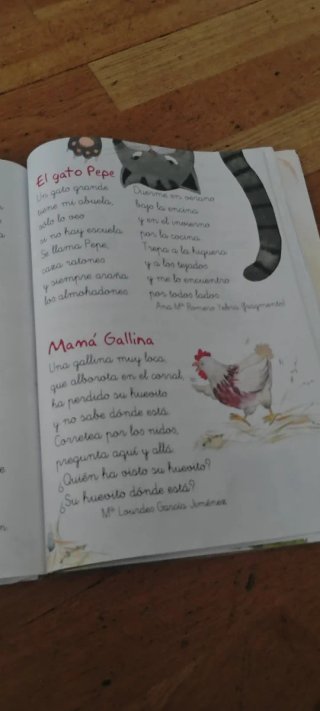 El gato Pepe
Un gato grande
tiene mi abuela,
sólo lo veo
si no hay escuela.
Se llama Pepe,
caza ratones
y siempre araña
los almohadones.
Duerme en verano
bajo la encina
y en el invierno
por la cocina.
Trepa a la higuera
y a los tejados
y me lo encuentro
por todos lados.
Ana Mª Romero Yebra (fragmento)
Mamá Gallina
Una gallina muy loca,
que alborota en el corral,
ha perdido su huevito
y no sabe dónde está.
Corretea por los nidos,
pregunta aquí y allá:
¿Quién ha visto su huevito?
¿Su huevito dónde está?
Mª Lourdes García Jiménez